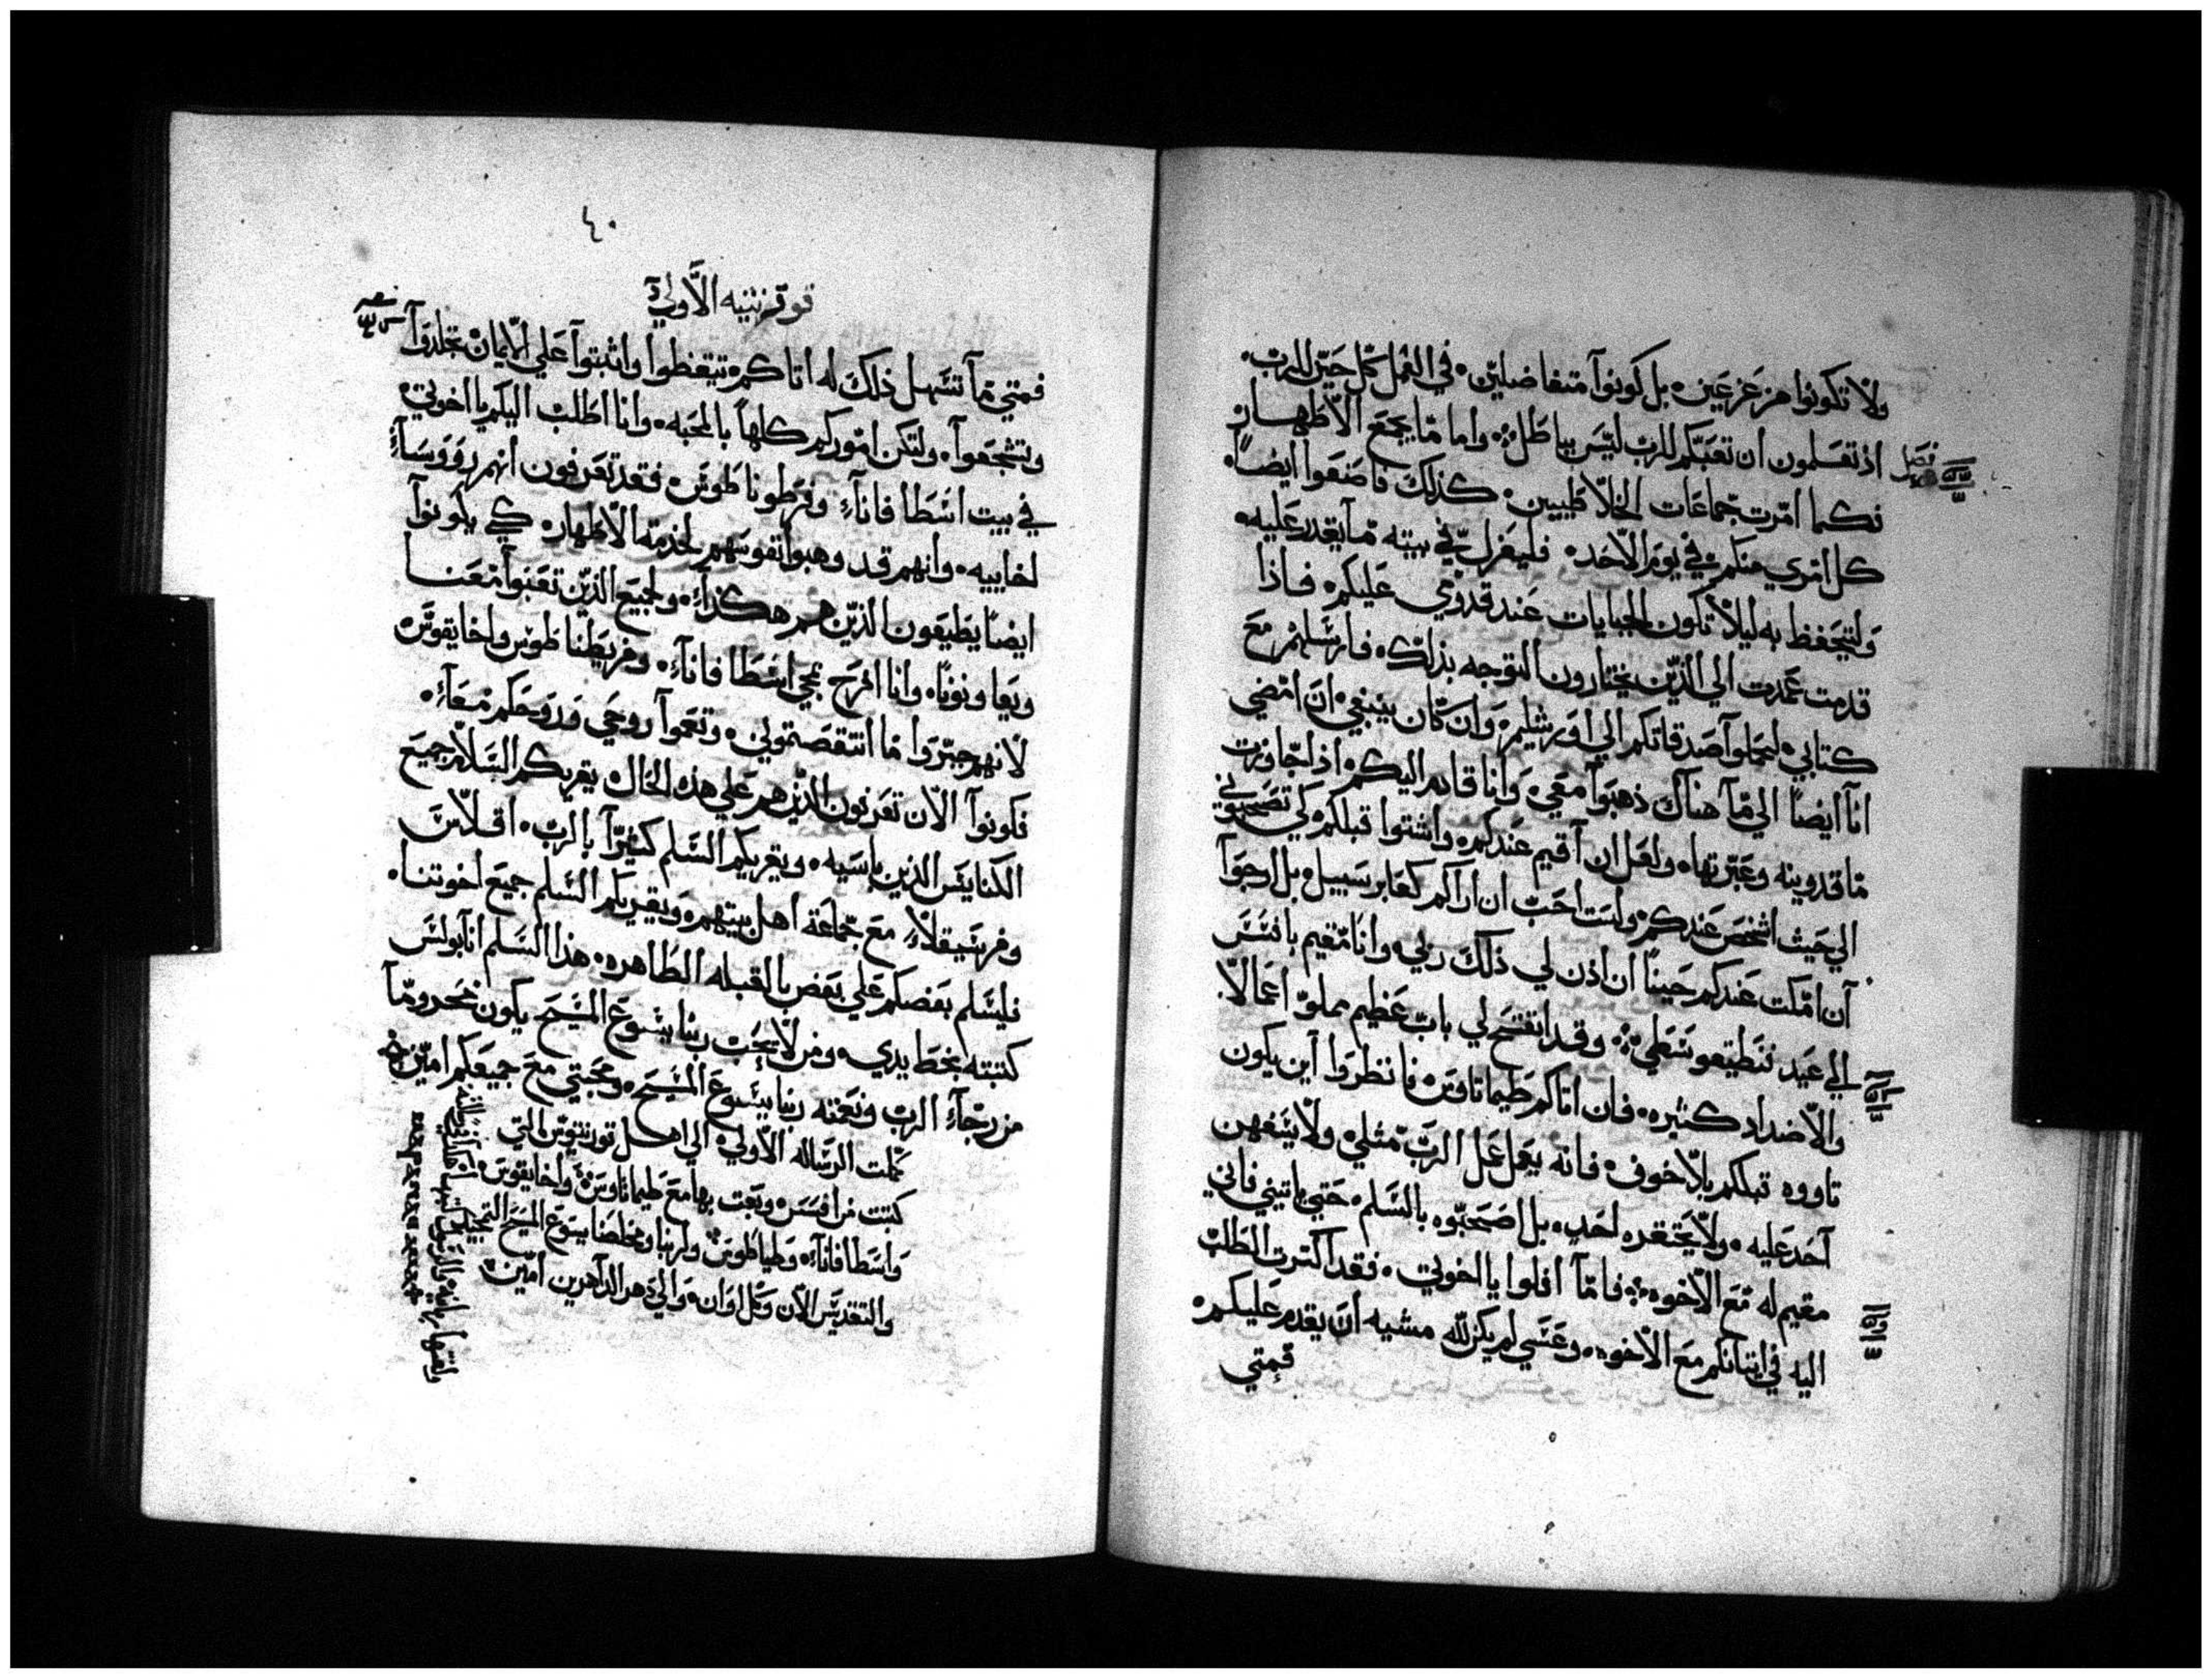 ولا تكونوا مزعزعين بل كونوا متفاضلين في العمل كل حين للرب
اذ تعلمون ان تعبكم للرب ليس بباطل واما ما يجمع الاطهار
فصل
فكما امرت جماعات الغلاطيين كذلك فاصنعوا ايضًا
كل امري منكم في يوم الاحد فليعزل في بيته ما يقدر عليه
وليتحفظ به ليلا تكون الجبايات عند قدومي عليكم فاذا
قدمت عمدت الي الذين يختارون التوجه بذلك فارسلهم مع
كتابي ليحملوا صدقاتكم الي اورشليم وان كان ينبغي ان امضي
انا ايضًا الي ما هناك ذهبوا معي وانا قادم اليكم اذا جاوزت
ماقدونيه وعبرتها ولعل ان اقيم عندكم واشتوا قبلكم كي تصحبوني
الي حيث اشخص عندكم ولست احب ان اراكم كعابر سبيل بل ارجوا
ان امكث عندكم حينًا ان اذن لي ذلك ربي وانا مقيم بافسس
الي عيد فنطيقوسطي وقد انفتح لي باب عظيم مملو اعمالا
والاضداد كثيره فان اتاكم طيماتاوس فانظروا اين يكون
تاووه قبلكم بلا خوف فانه يعمل عمل الرب مثلي ولا يتغهن
احد عليه ولا يحتقره احد بل اصحبوه بالسلم حتي ياتيني فاني
مقيم له مع الاخوه فاما افلوا يا اخوتي فقد اكثرت الطلب
اليه في اتيانكم مع الاخوه وعسي لم يكن لله مشيه ان يقدم عليكم
فمتي
٤٠
قوقرنثيه الاولي
فمتي ما تسهل ذلك له اتاكم تيقظوا واثبتوا علي الايمان تجلدوا
وتشجعوا ولتكن اموركم كلها بالمحبه وانا اطلب اليكم يا اخوتي
في بيت اسطافانا وفرطوناطوس فقد تعرفون انهم رووسا
اخاييه وانهم قد وهبوا نفوسهم لخدمة الاطهار كي يكونوا
ايضًا يطيعون الذين هم هكذا ولجميع الذين تعبوا معنا
ويعاونونا وانا افرح بمجي اسطافانا وفريطناطوس واخايقوس
لانهم جبروا ما انتقصتموني ونعموا روحي وروحكم معا
فكونوا الان تعرفون الذين هم علي هذه الحال يقريكم السلام جميع
الكنايس الذين باسيه ويقريكم السلم كثيرًا بالرب اقلاس
وفرسيقلا مع جماعة اهل بيتهم ويقريكم السلم جميع اخوتنا
فليسلم بعضكم علي بعض بالقبله الطاهره هذا السلم انا بولس
كتبته بخط يدي ومن لا يحب ربنا يسوع المسيح يكون محرومًا
من رجاء الرب ونعمة ربنا يسوع المسيح ومحبتي مع جميعكم امين
كملت الرساله الاولي الي اهل قورنثيوس التي
كتبت من افسس وبعث بها مع طيماتاوس واخايقوس
واسطافانا وطياطوس ولربنا ومخلصنا يسوع المسيح التبجيل
والتقديس الان وكل اوان والي دهر الداهرين امين